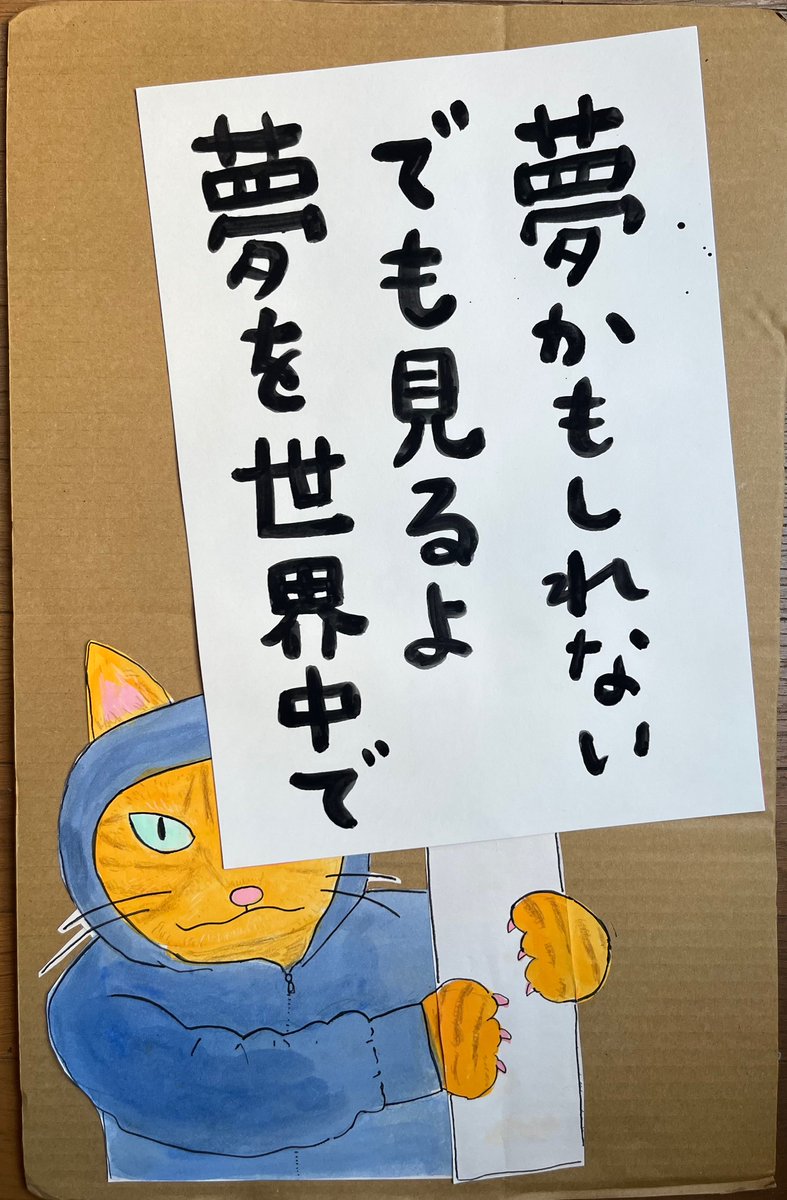 夢かもしれない
でも見るよ
夢を世界中で